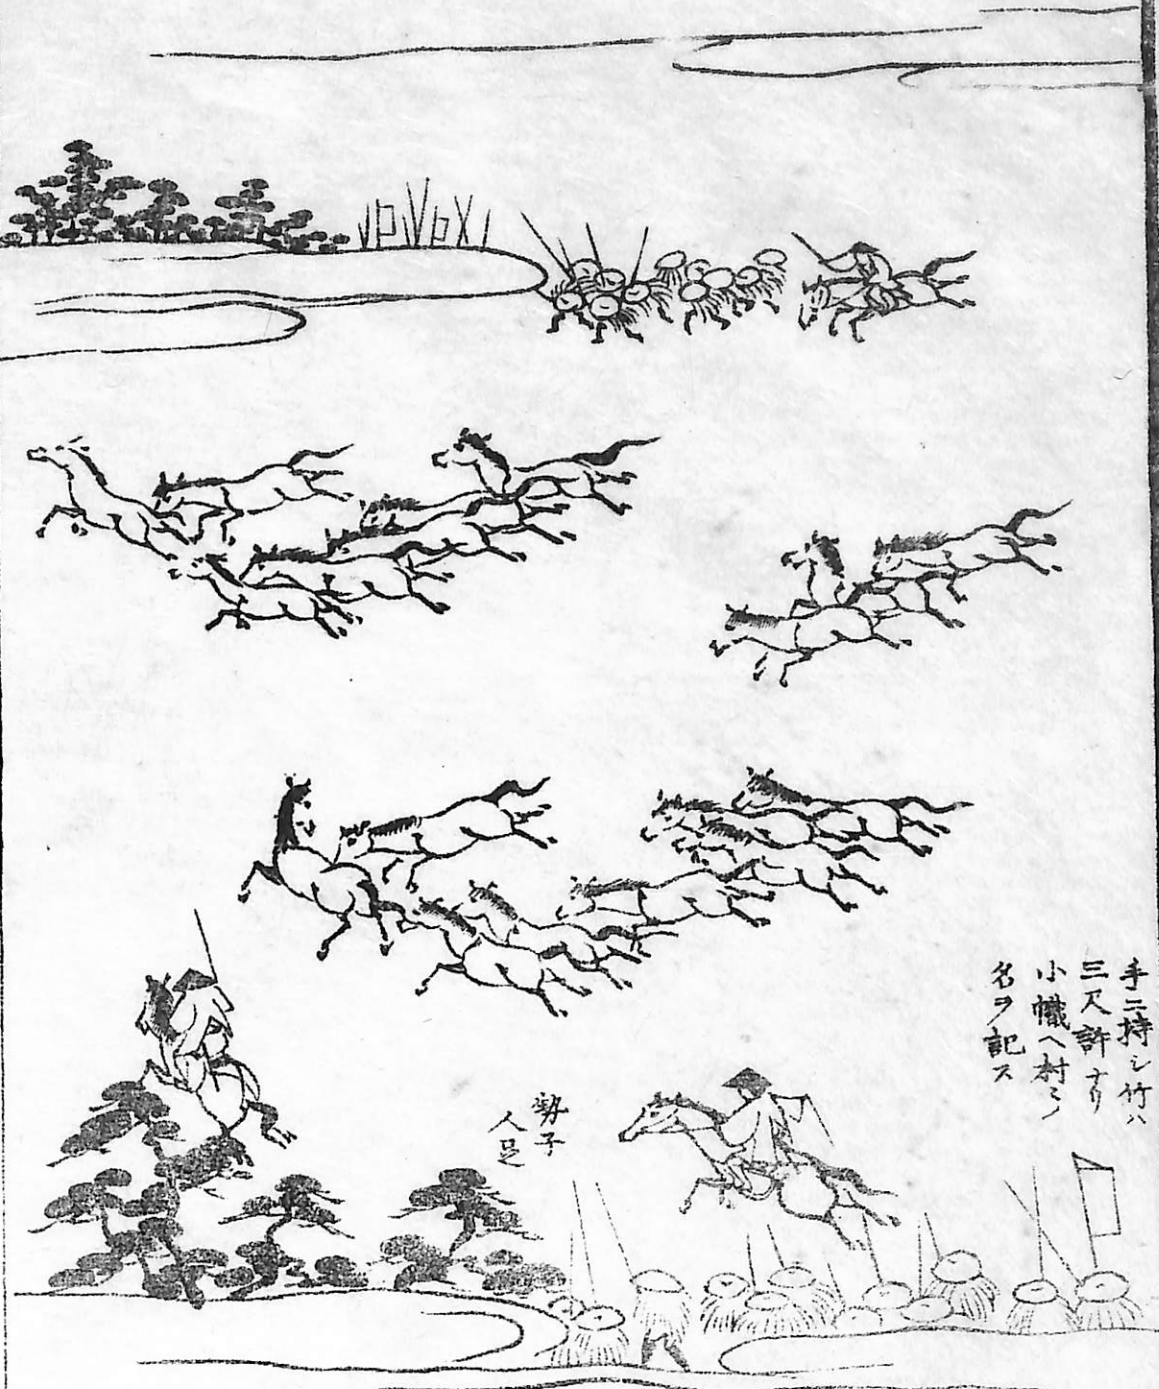 手ニ持シ竹ハ
三尺許ナリ
小幟ヘ村〻ノ
名ヲ記ス
勢子
人足